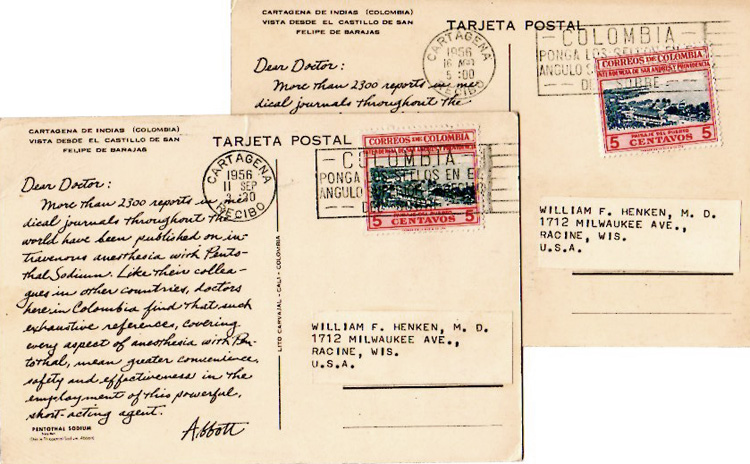 CARTAGENA DE INDIAS (COLOMBIA)
VISTA DESDE EL CASTILLO DE SAN
FELIPE DE BARAJAS
TARJETA POSTAL
CARTAGENA
1956
16 AGO
5:00
RECIBO
COLOMBIA
PONGA LOS SELLOS EN E
ANGULO S
DE SOBRE
CORREOS DE COLOMBIA
INTENDENCIA DE SAN ANDRES Y PROVIDENCIA
PAISAJE DEL PUERTO
5 CENTAVOS 5
Dear Doctor:
More than 2300 reports in me-
dical journals throughout the
WILLIAM F. HENKEN, M. D.
1712 MILWAUKEE AVE.,
RACINE, WIS.
U.S.A.
CARTAGENA DE INDIAS (COLOMBIA)
VISTA DESDE EL CASTILLO DE SAN
FELIPE DE BARAJAS
TARJETA POSTAL
CARTAGENA
1956
11 SEP
RECIBO
COLOMBIA
PONGA LOS SELLOS EN EL
ANGULO
CORREOS DE COLOMBIA
INTENDENCIA DE SAN ANDRES Y PROVIDENCIA
5 CENTAVOS 5
Dear Doctor:
More than 2300 reports in me-
dical journals throughout the
world have been published on in-
travenous anesthesia with Pento-
thal Sodium. Like their collea-
gues in other countries, doctors
here in Colombia find that such
exhaustive references, covering
every aspect of anesthesia with Pen-
tothal, mean greater convenience,
safety and effectiveness in the
employment of this powerful,
short-acting agent.
Abbott
PENTOTHAL SODIUM
LITO CARVAJAL - CALI - COLOMBIA
WILLIAM F. HENKEN, M. D.
1712 MILWAUKEE AVE.,
RACINE, WIS.
U.S.A.